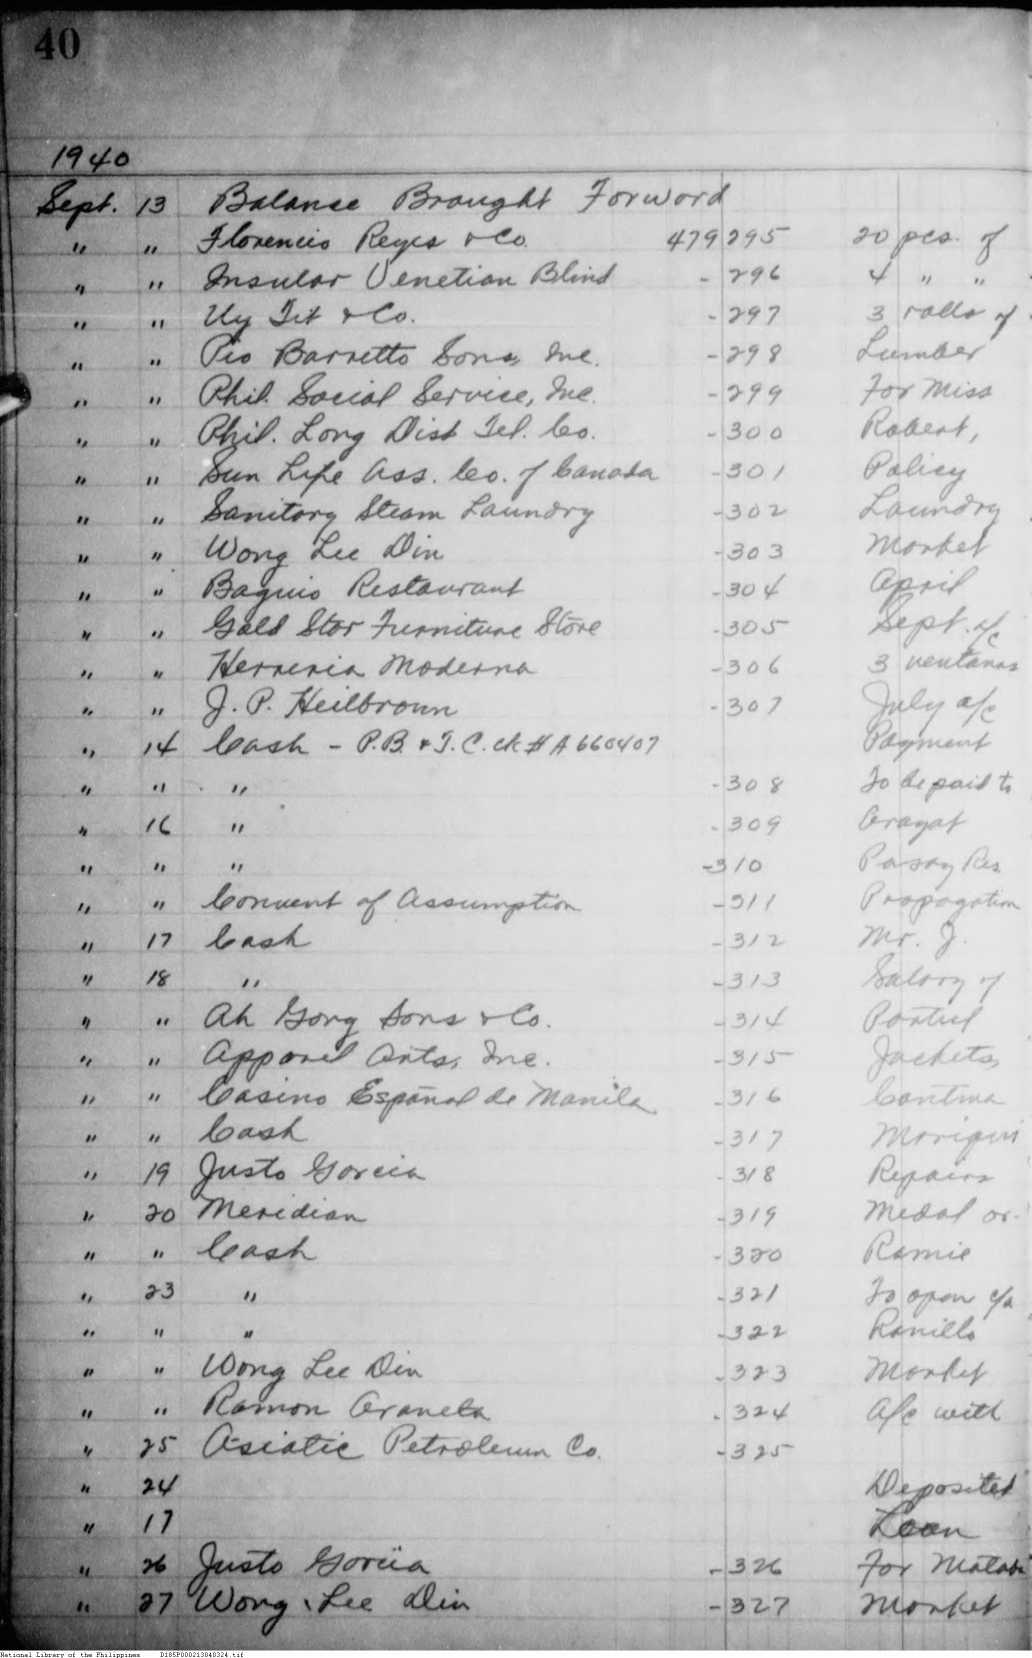 40
1940
Sept. 13 Balance Brought Forward
" " Florencio Reyes & Co. 479 295 20 pcs. of
" " Insular Venetian Blind - 296 4 " "
" " Uy Tit & Co. - 297 3 rolls of
" " Pio Barretto Sons, Inc. - 298 Lumber
" " Phil. Social Service, Inc. - 299 For Miss
" " Phil. Long Dist Tel. Co. - 300 Robert,
" " Sun Life Ass. Co. of Canada - 301 Policy
" " Sanitary Steam Laundry - 302 Laundry
" " Wong Lee Din - 303 Market
" " Baguio Restaurant - 304 April
" " Gold Star Furniture Store - 305 Sept. a/c
" " Herreria Moderna - 306 3 ventanas
" " J. P. Heilbronn - 307 July a/c
" 14 Cash - P.B. & T. C. ck # A 660407 Payment
" " " - 308 To be paid to
" 16 " - 309 Arayat
" " " - 310 Pasay Res.
" " Convent of Assumption - 311 Propagation
" 17 Cash - 312 Mr. J.
" 18 " - 313 Salary of
" " Ah Gong Sons & Co. - 314
" " Apparel Arts, Inc. - 315 Jackets,
" " Casino Español de Manila - 316 Cantina
" " Cash - 317
" 19 Justo Garcia - 318 Repairs
" 20 Meridian - 319 Medal or
" " Cash - 320 Ramie
" 23 " - 321 To open c/a
" " " - 322
" " Wong Lee Din - 323 Market
" " Ramon Araneta - 324 A/c with
" 25 Asiatic Petroleum Co. - 325
" 24 Deposited
" 17 Loan
" 26 Justo Garcia - 326 For
" 27 Wong Lee Din - 327 Market
National Library of the Philippines D185P000213840324.tif